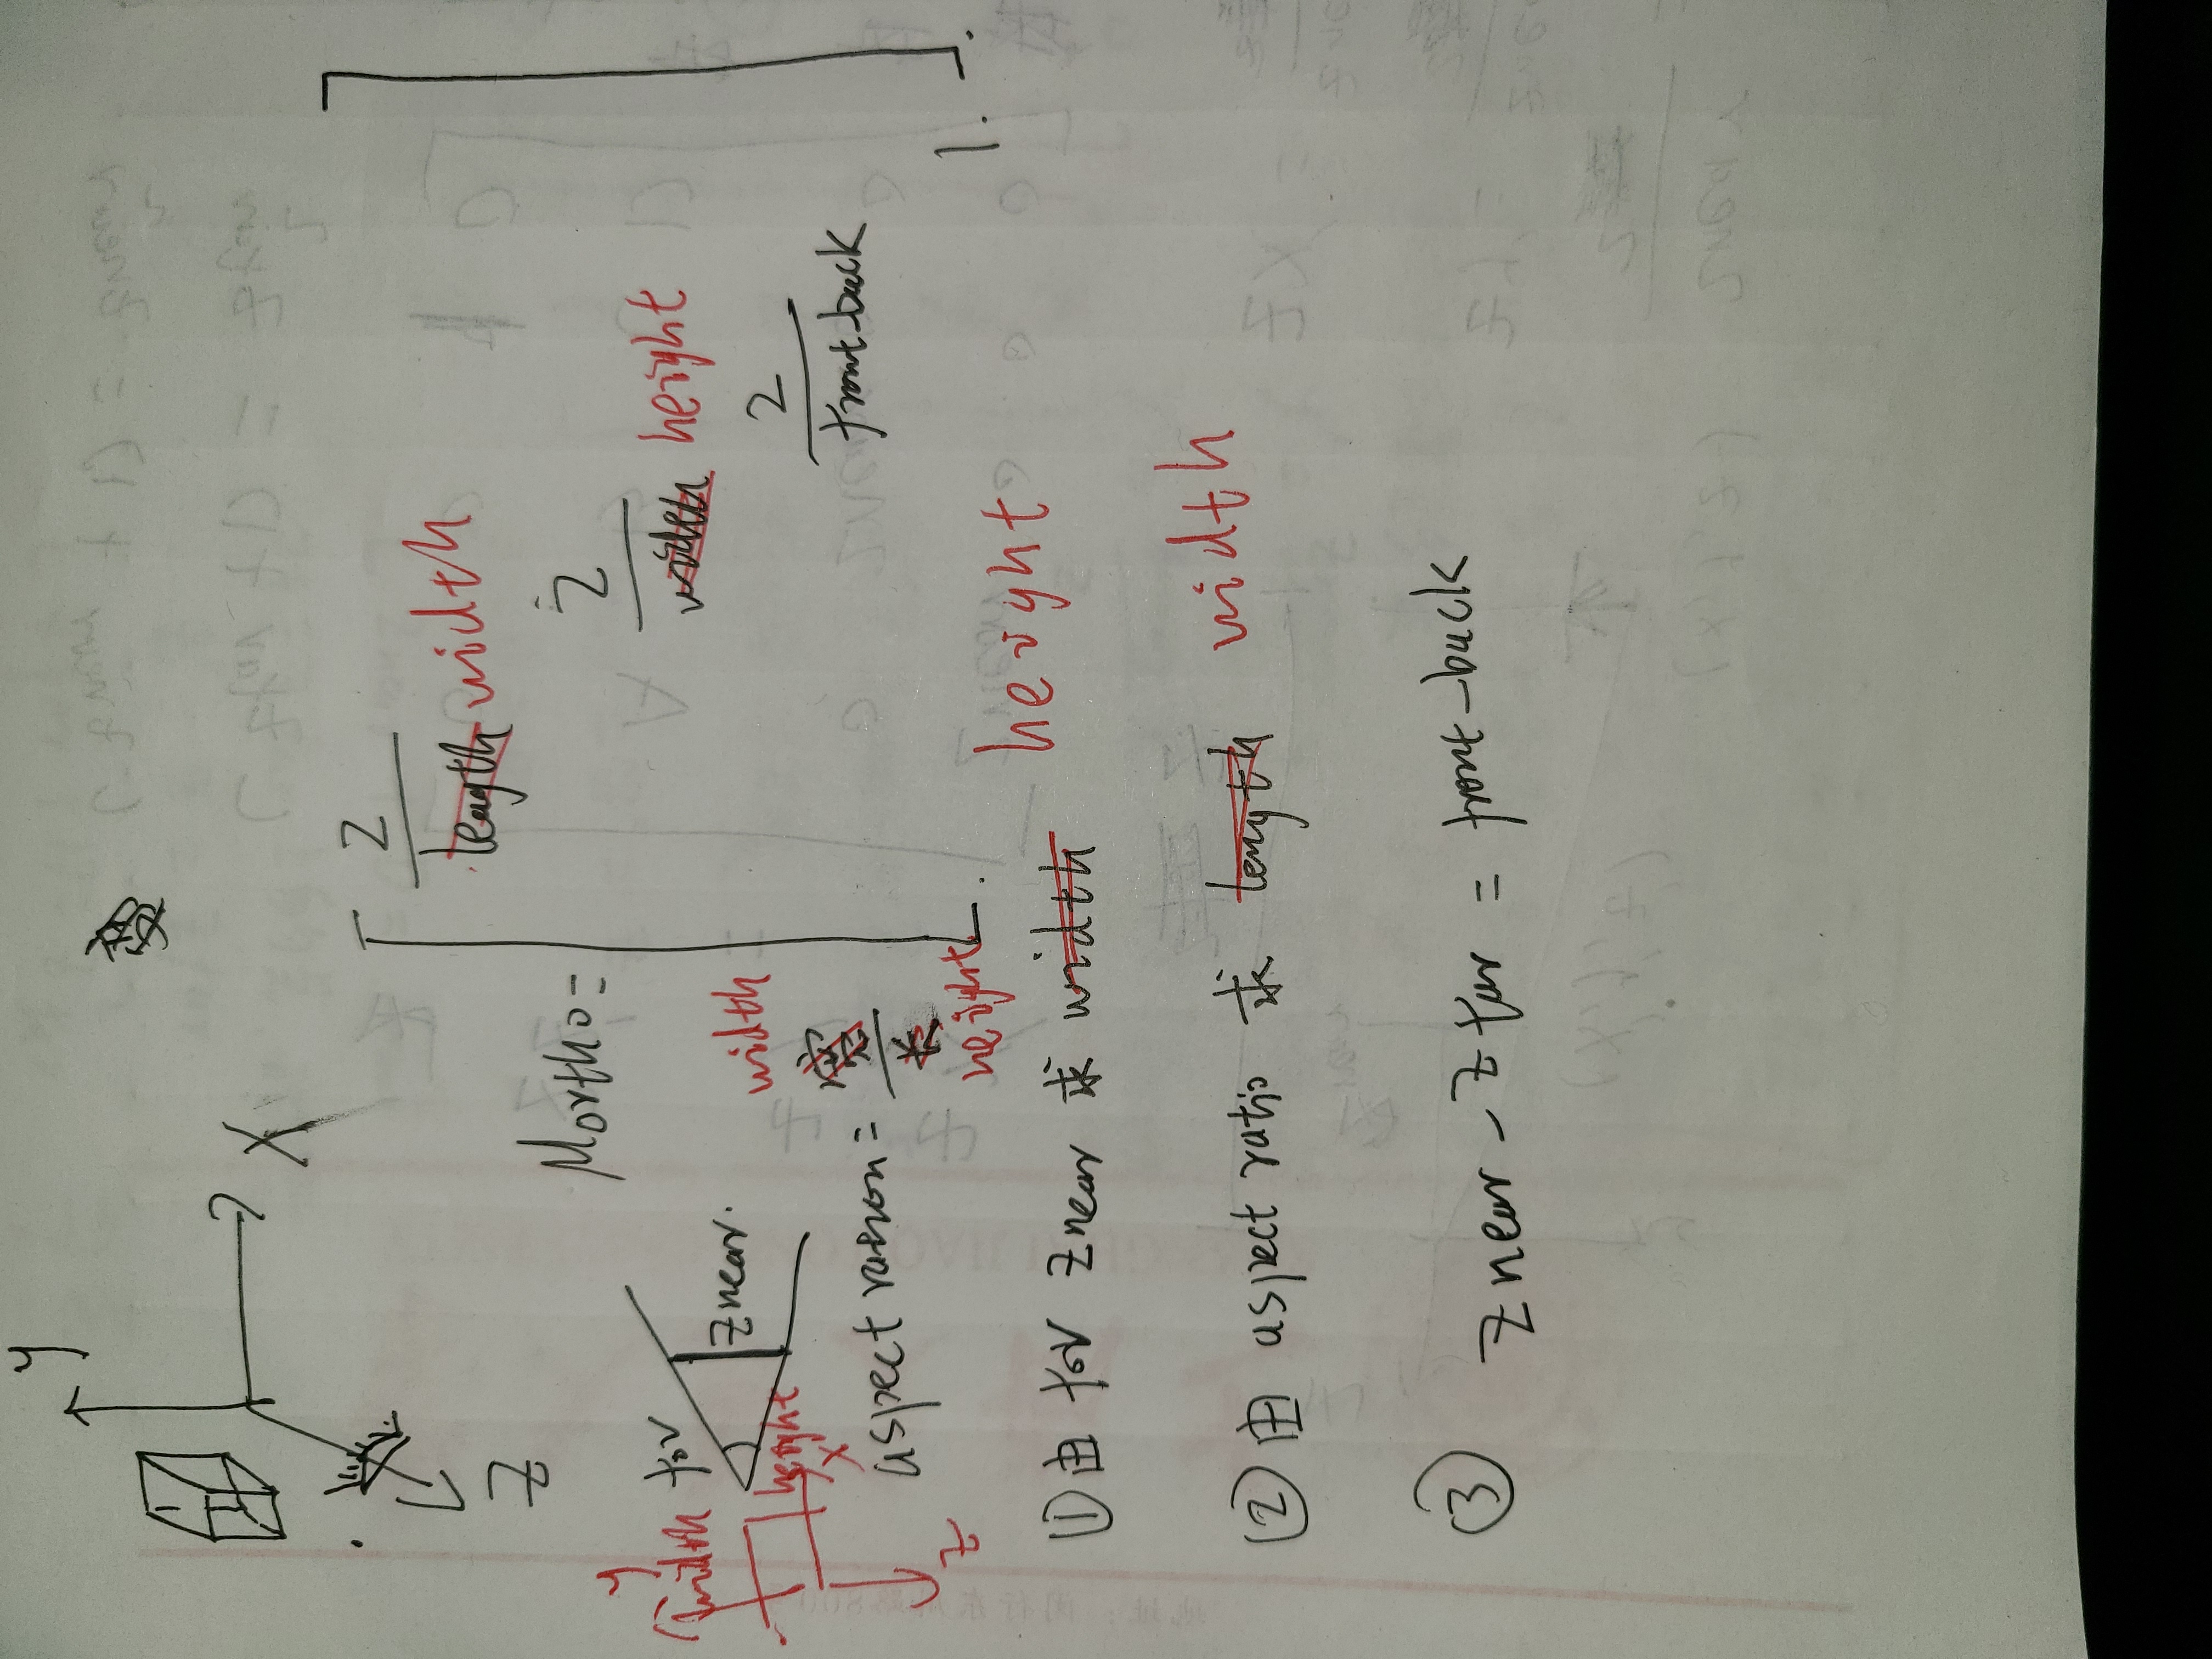 y
X
Z
Mortho =
2
length width
2
width height
2
front-back
1.
y
width
fov
Znear.
height
x
z
aspect ration =
width
宽
长
height
①由 fov Znear 求 width height
②由 aspect ratio 求 length width
③ Znear - Z far = front-back